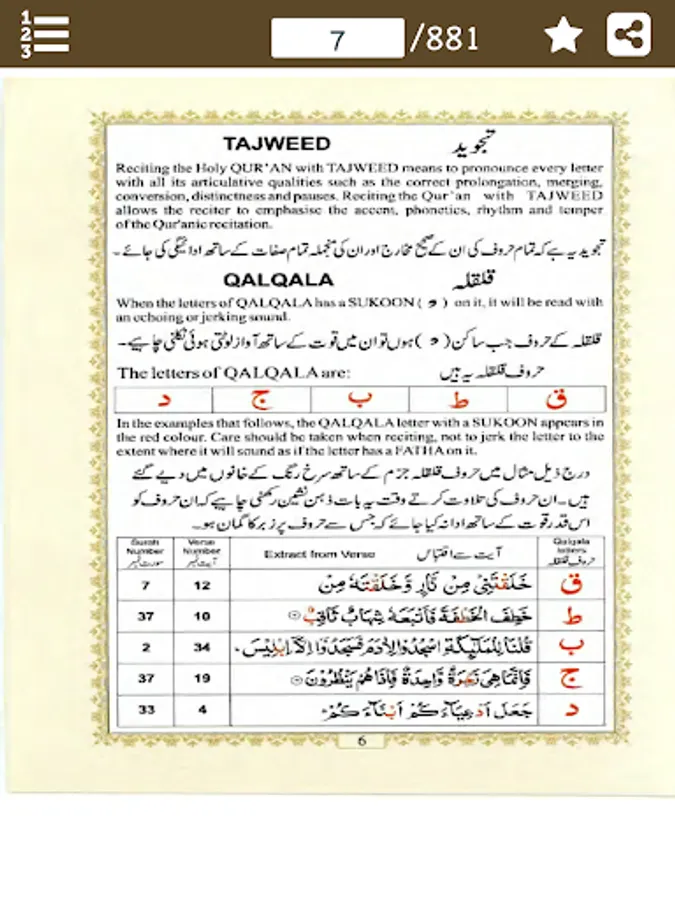 1
2
3
7 /881
TAJWEED تجوید
Reciting the Holy QUR'AN with TAJWEED means to pronounce every letter
with all its articulative qualities such as the correct prolongation, merging,
conversion, distinctness and pauses. Reciting the Qur'an with TAJWEED
allows the reciter to emphasise the accent, phonetics, rhythm and temper
of the Qur'anic recitation.
تجوید یہ ہے کہ تمام حروف کی ان کے صحیح مخارج اور ان کی منجملہ تمام صفات کے ساتھ ادائیگی کی جائے۔
QALQALA قلقلہ
When the letters of QALQALA has a SUKOON ( ) on it, it will be read with
an echoing or jerking sound.
قلقلہ کے حروف جب ساکن ( ) ہوں تو ان میں قوت کے ساتھ آواز لوٹتی ہوئی نکلنی چاہیے۔
The letters of QALQALA are: حروف قلقلہ یہ ہیں
ق ط ب ج د
In the examples that follows, the QALQALA letter with a SUKOON appears in
the red colour. Care should be taken when reciting, not to jerk the letter to the
extent where it will sound as if the letter has a FATHA on it.
درج ذیل مثال میں حروف قلقلہ جزم کے ساتھ سرخ رنگ کے خانوں میں دیے گئے
ہیں۔ ان حروف کی تلاوت کرتے وقت یہ بات ذہن نشین رکھنی چاہیے کہ ان حروف کو
اس قدر قوت کے ساتھ ادا نہ کیا جائے کہ جس سے حروف پر زبر کا گمان ہو۔
Surah Number سورت نمبر Verse Number آیت نمبر Extract from Verse آیت سے اقتباس Qalqala letters حروف قلقلہ
7 12 خَلَقْتَنِیْ مِنْ نَّارٍ وَّخَلَقْتَهٗ مِنْ ق
37 10 خَطِفَ الْخَطْفَةَ فَاَتْبَعَهٗ شِهَابٌ ثَاقِبٌ ط
2 34 قُلْنَا لِلْمَلٰٓئِكَةِ اسْجُدُوْا لِاٰدَمَ فَسَجَدُوْۤا اِلَّاۤ اِبْلِیْسَ ب
37 19 فَاِنَّمَا هِیَ زَجْرَةٌ وَّاحِدَةٌ فَاِذَا هُمْ یَنْظُرُوْنَ ج
33 4 جَعَلَ اَدْعِیَآءَكُمْ اَبْنَآءَكُمْ د
6